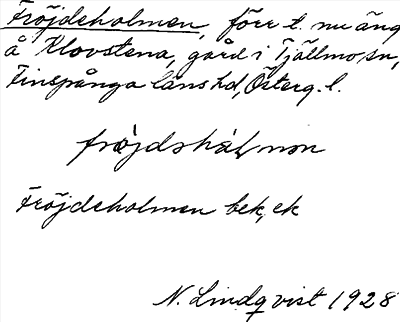 Fröjdeholmen, förr t. nu äng
å Klovstena, gård i Tjällmo sn,
Finspånga läns hd, Österg. l.
fröjdshål/mən
Fröjdeholmen bek, ek
N. Lindqvist 1928